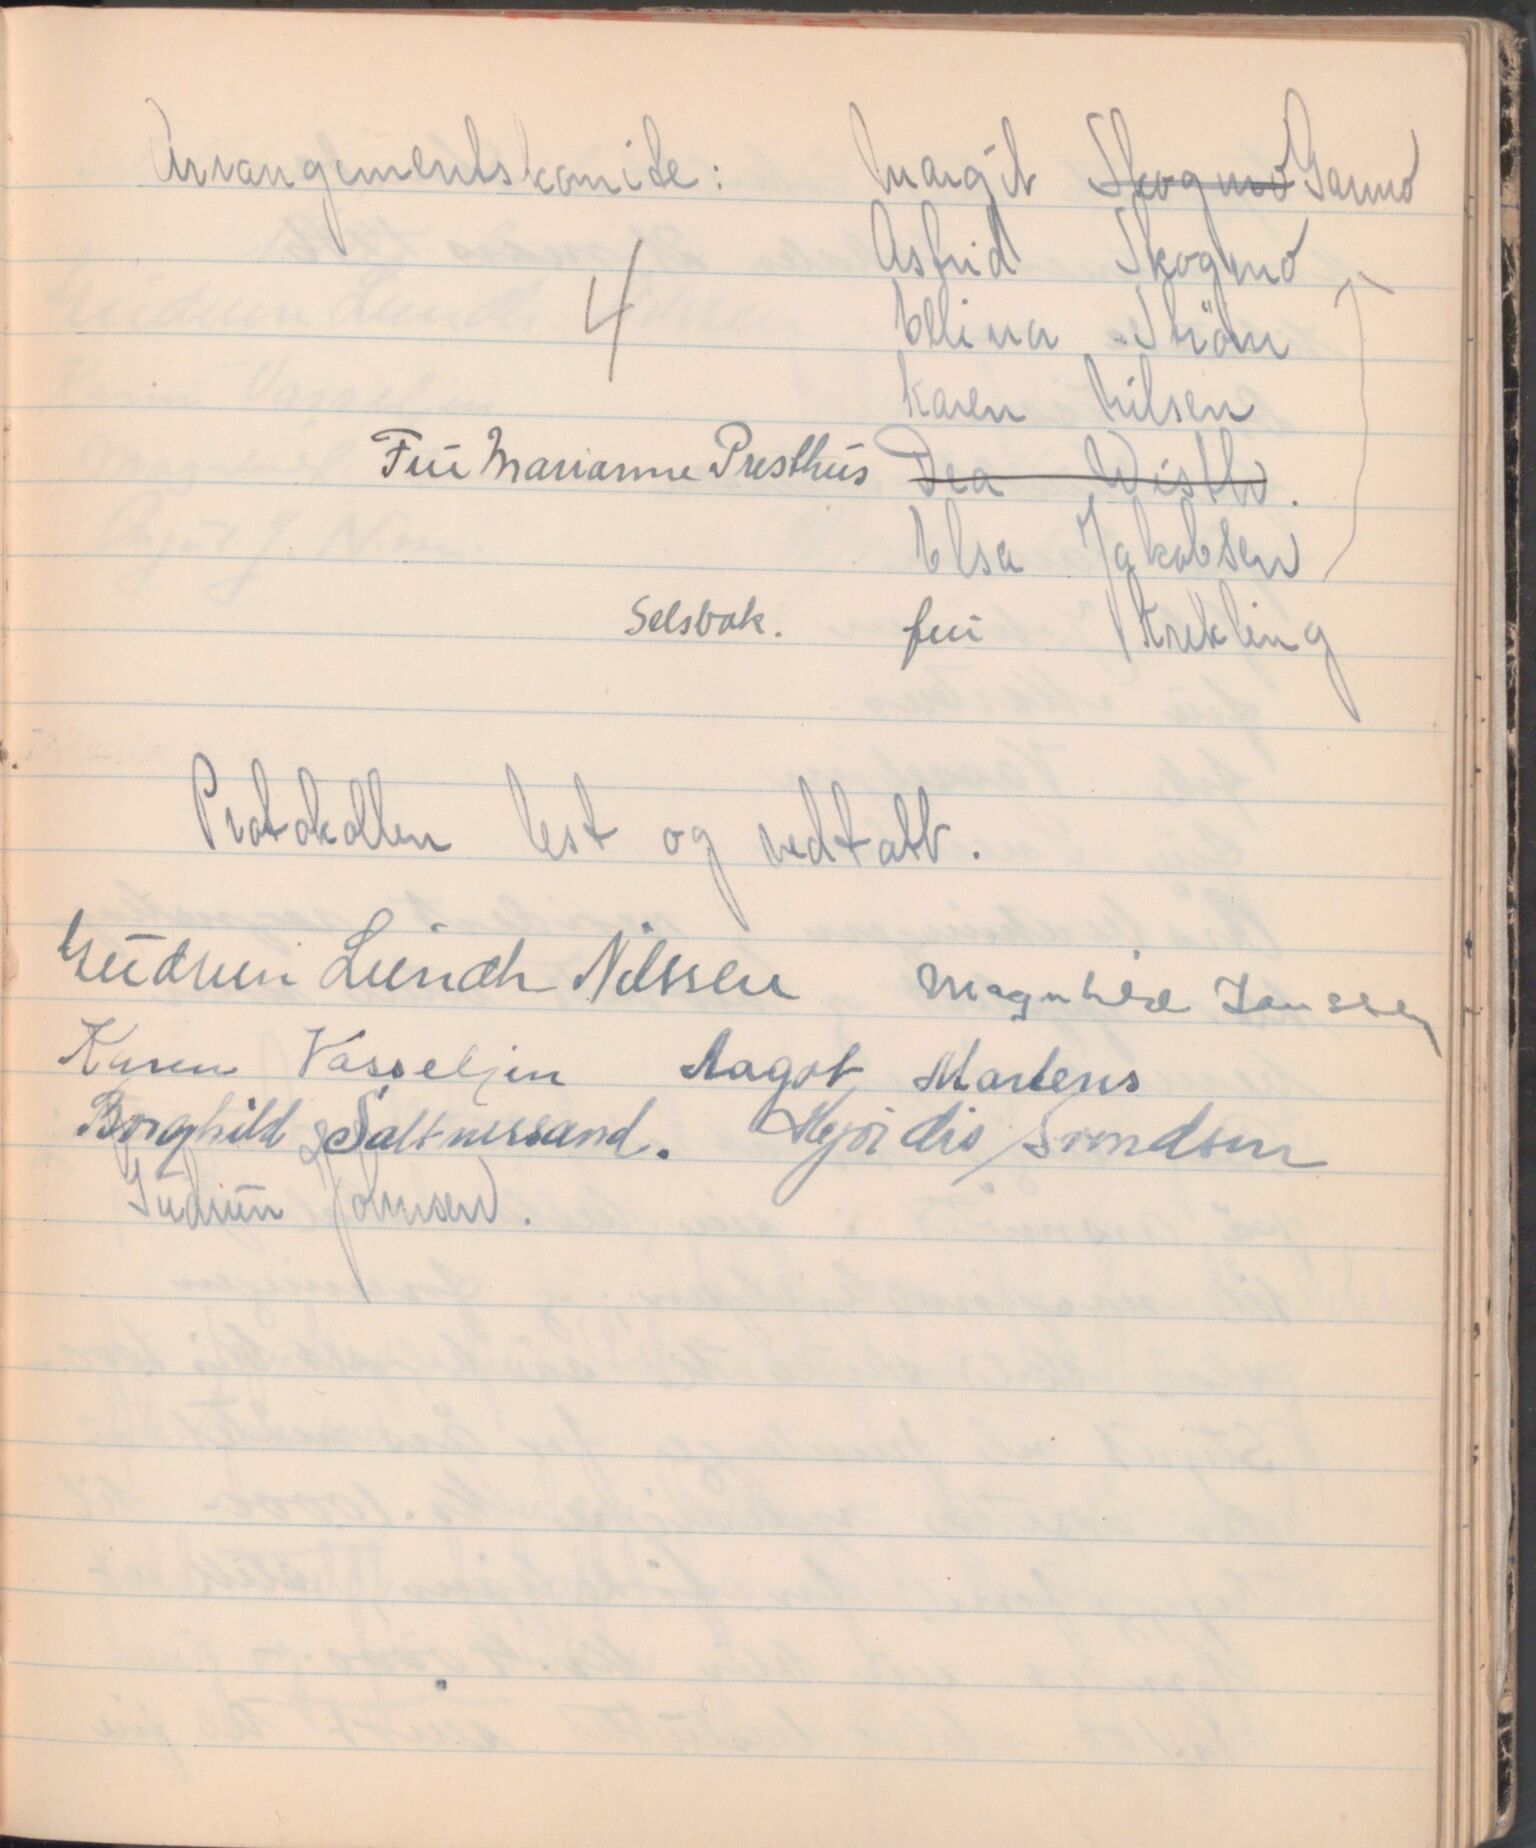 Arrangementskomite: Margit Skogmo Sanmo
Astrid Skogmo
4
Ellina Ström
Karen Nilsen
Frü Marianne Presthüs Dea Wisth.
Elsa Jakobsen
Selsbak. frü Krekling
Protokollen lest og vedtatt.
Güdrun Lündh Nilssen Magnhild Janssen
Karen Vasseljen Aagot Martens
Borghild Saltnessand. Hjördis Svendsen
Gudrün Johnsen.